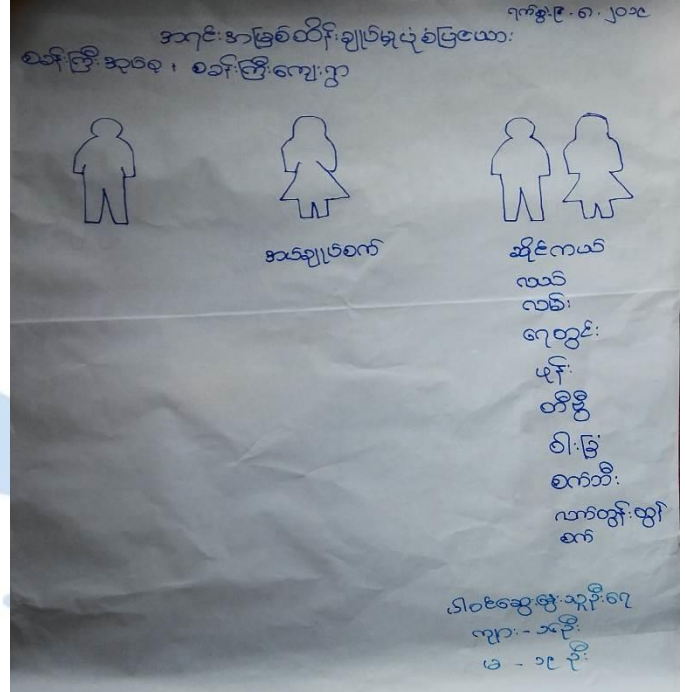 ရက်စွဲ၊ ၉ . ၆ . ၂၀၁၉
အရင်းအမြစ်ထိန်းချုပ်မှုပုံစံပြဇယား
စခန်းကြီးအုပ်စု ၊ စခန်းကြီးကျေးရွာ
အပ်ချုပ်စက်
ဆိုင်ကယ်
လယ်
လမ်း
ရေတွင်း
ဖုန်း
တီဗွီ
ဝါးခြံ
စက်ဘီး
လက်တွန်းထွန်
စက်
ပါဝင်ဆွေးနွေးသူဦးရေ
ကျား - ၁၄ဦး
မ - ၁၉ ဦး